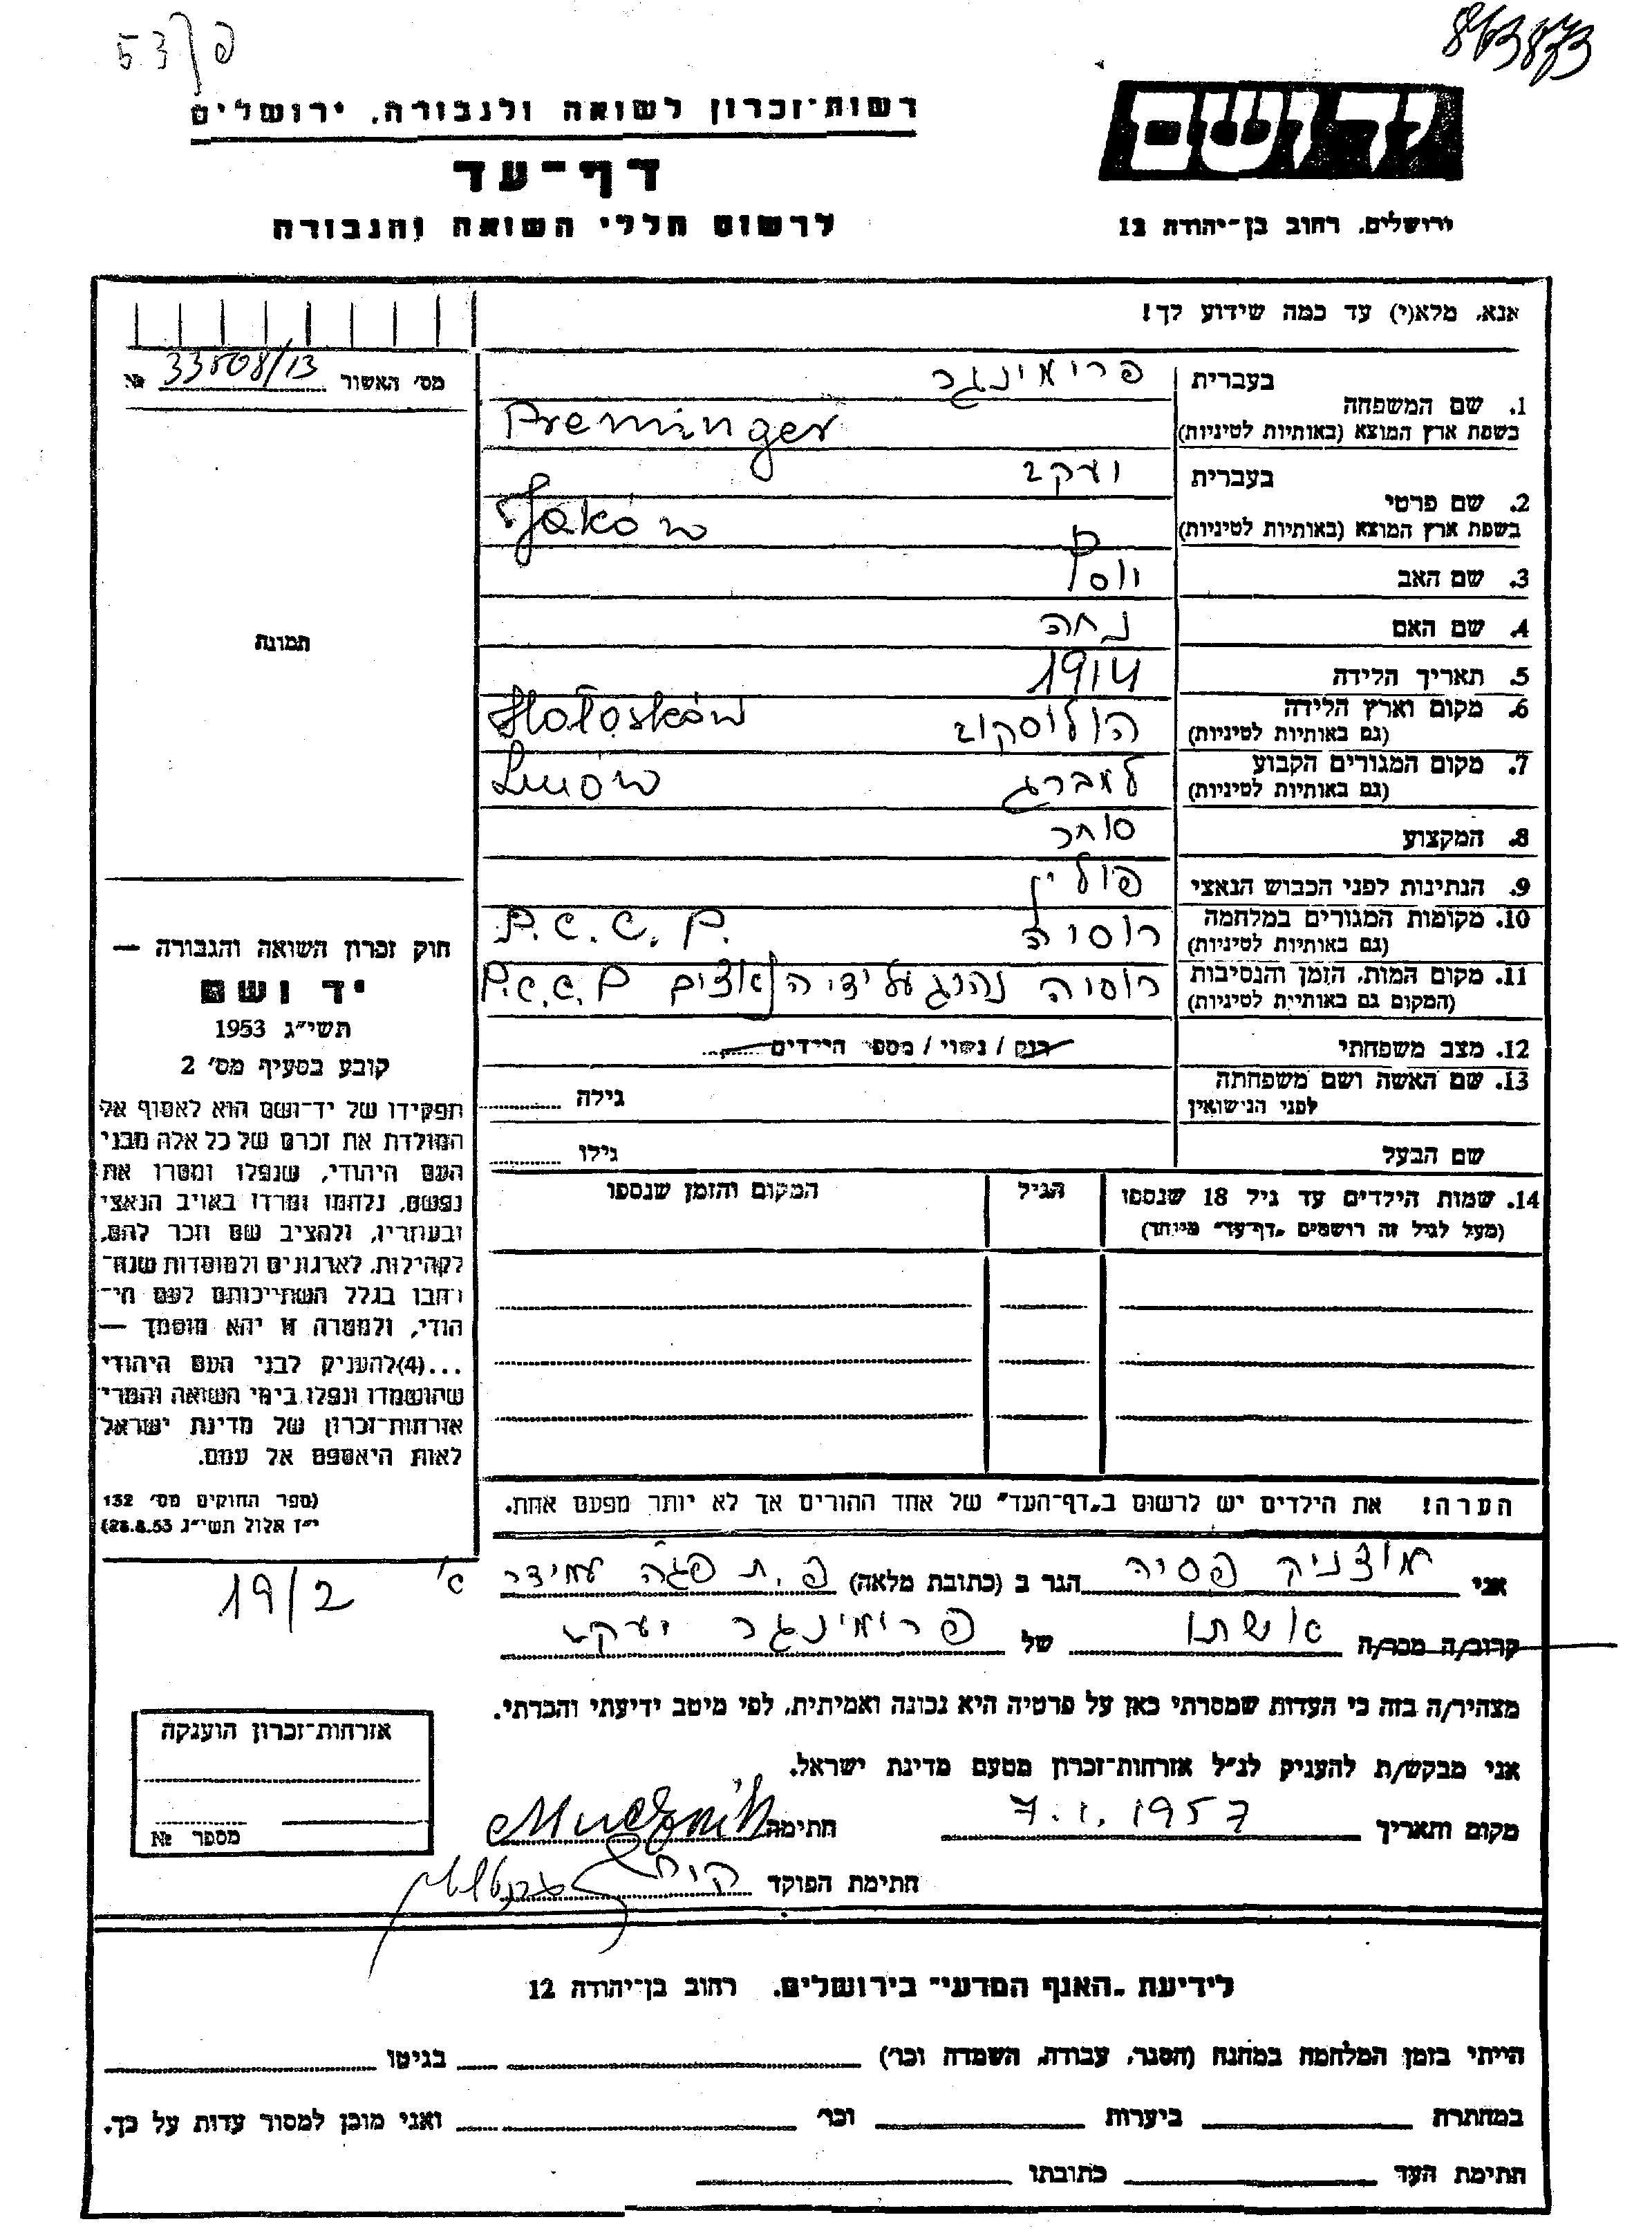 פ/53
863873
יד ושם
רשות־זכרון לשואה ולגבורה, ירושלים
דף־עד
לרשום חללי השואה והגבורה
ירושלים, רחוב בן־יהודה 12
אנא, מלא(י) עד כמה שידוע לך!
מס׳ האשור 33508/13 №
תמונה
1. שם המשפחה
בעברית פרימינגר
בשפת ארץ המוצא (באותיות לטיניות) Preminger
2. שם פרטי
בעברית יעקב
בשפת ארץ המוצא (באותיות לטיניות) Jaków
3. שם האב יוסף
4. שם האם נחה
5. תאריך הלידה 1914
6. מקום וארץ הלידה הולוסקוב Hołosków
(גם באותיות לטיניות)
7. מקום המגורים הקבוע למברג Lwów
(גם באותיות לטיניות)
8. המקצוע סוחר
9. הנתינות לפני הכבוש הנאצי פולין
10. מקומות המגורים במלחמה רוסיה P.C.C.P.
(גם באותיות לטיניות)
11. מקום המות, הזמן והנסיבות רוסיה נהרג על ידי הנאצים P.C.C.P
(המקום גם באותיות לטיניות)
12. מצב משפחתי רוק / נשוי / מספר הילדים
13. שם האשה ושם משפחתה
לפני הנישואין
גילה
שם הבעל
גילו
14. שמות הילדים עד גיל 18 שנספו
(מעל לגיל זה רושמים „דף־עד״ מיוחד)
הגיל
המקום והזמן שנספו
חוק זכרון השואה והגבורה —
יד ושם
תשי״ג 1953
קובע בסעיף מס׳ 2
תפקידו של יד־ושם הוא לאסוף אל
המולדת את זכרם של כל אלה מבני
העם היהודי, שנפלו ומסרו את
נפשם, נלחמו ומרדו באויב הנאצי
ובעוזריו, ולהציב שם וזכר להם,
לקהילות, לארגונים ולמוסדות שנח־
רבו בגלל השתייכותם לעם הי־
הודי, ולמטרה זו יהא מוסמך —
...(4) להעניק לבני העם היהודי
שהושמדו ונפלו בימי השואה והמרי
אזרחות־זכרון של מדינת ישראל
לאות היאספם אל עמם.
(ספר החוקים מס׳ 132
י״ז אלול תשי״ג 28.8.53)
הערה! את הילדים יש לרשום ב„דף־העד״ של אחד ההורים אך לא יותר מפעם אחת.
אני מוצניק פסיה הגר ב (כתובת מלאה) פ.ת
19/2
קרוב/ה מכר/ה אישתו של פרימינגר יעקב
מצהיר/ה בזה כי העדות שמסרתי כאן על פרטיה היא נכונה ואמיתית, לפי מיטב ידיעתי והכרתי.
אני מבקש/ת להעניק לנ״ל אזרחות־זכרון מטעם מדינת ישראל.
מקום ותאריך 7.1.1957 חתימה Mucznik
חתימת הפוקד
אזרחות־זכרון הוענקה
מספר №
לידיעת „האגף המדעי״ בירושלים, רחוב בן־יהודה 12
הייתי בזמן המלחמה במחנה (הסגר, עבודה, השמדה וכו׳) בגיטו
במחתרת ביערות וכו׳ ואני מוכן למסור עדות על כך.
חתימת העד כתובתו